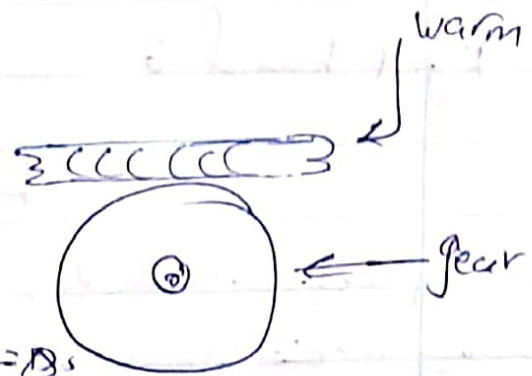 warm
gear